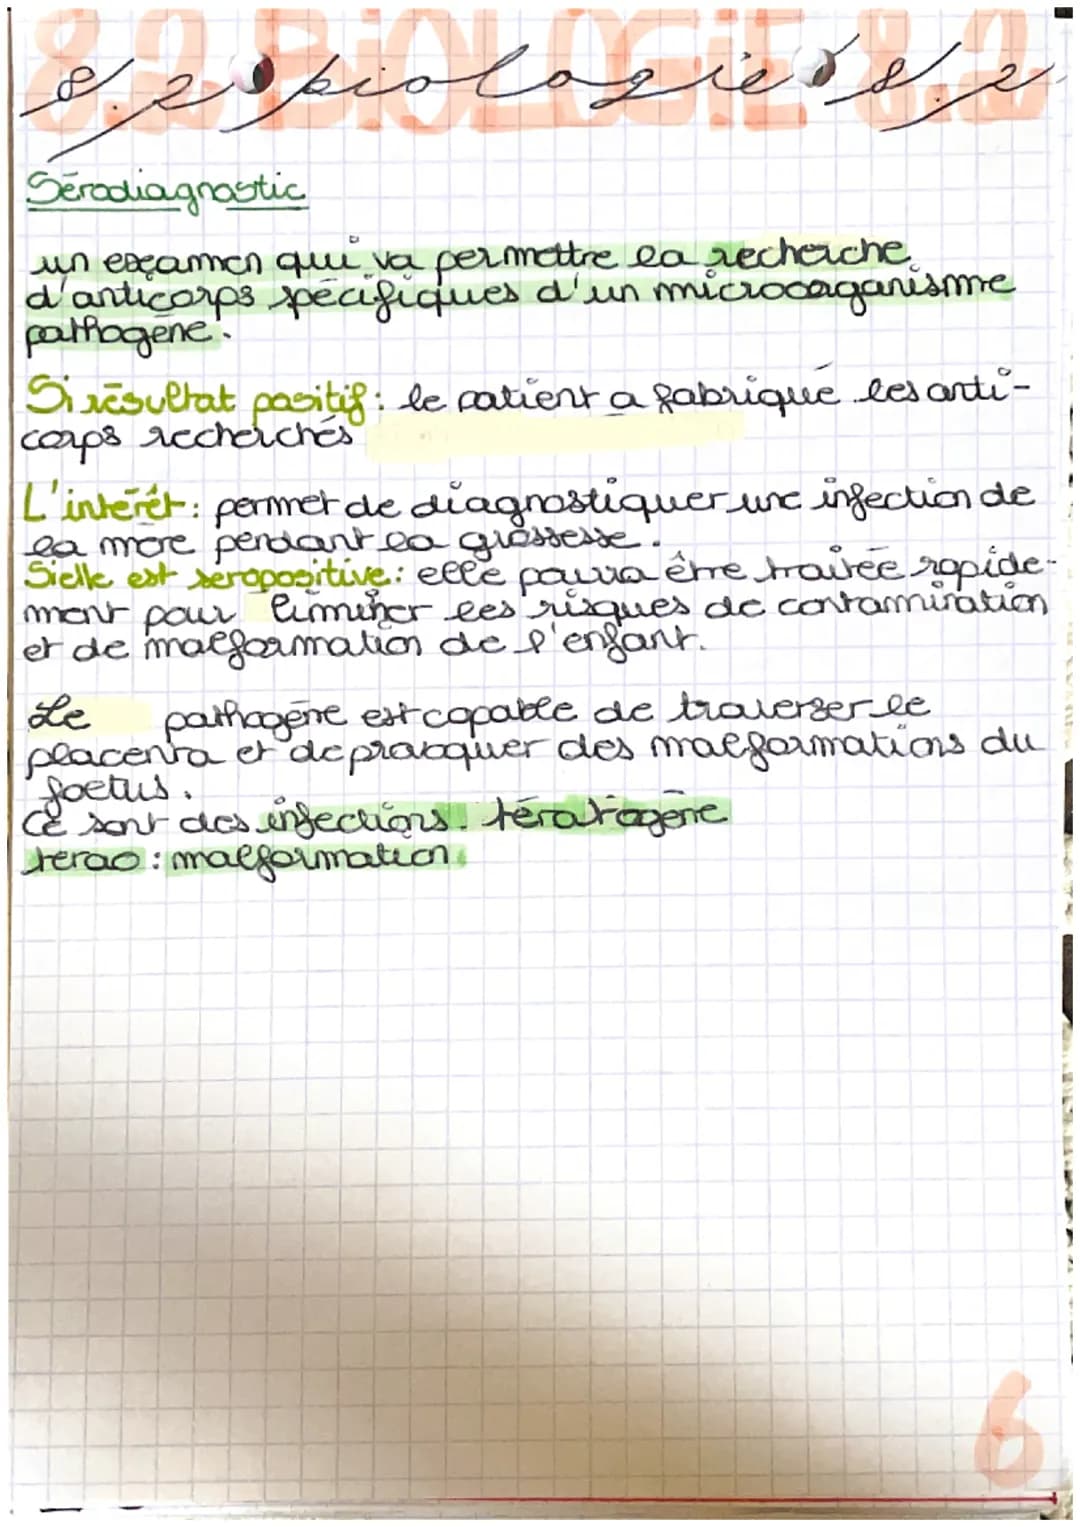 8.2 BiOLOGiE 8.2
8.2 biologie 8.2
Sérodiagnostic
un examen qui va permettre la recherche
d'anticorps spécifiques d'un microorganisme
pathogène.
Si résultat positif : le patient a fabriqué les anti-
corps recherchés
L'intérêt : permet de diagnostiquer une infection de
la mère pendant la grossesse.
Si elle est séropositive : elle pourra être traitée rapide-
ment pour limiter les risques de contamination
et de malformation de l'enfant.
Le pathogène est capable de traverser le
placenta et de provoquer des malformations du
foetus.
Ce sont des infections tératogène
terao : malformation.
6